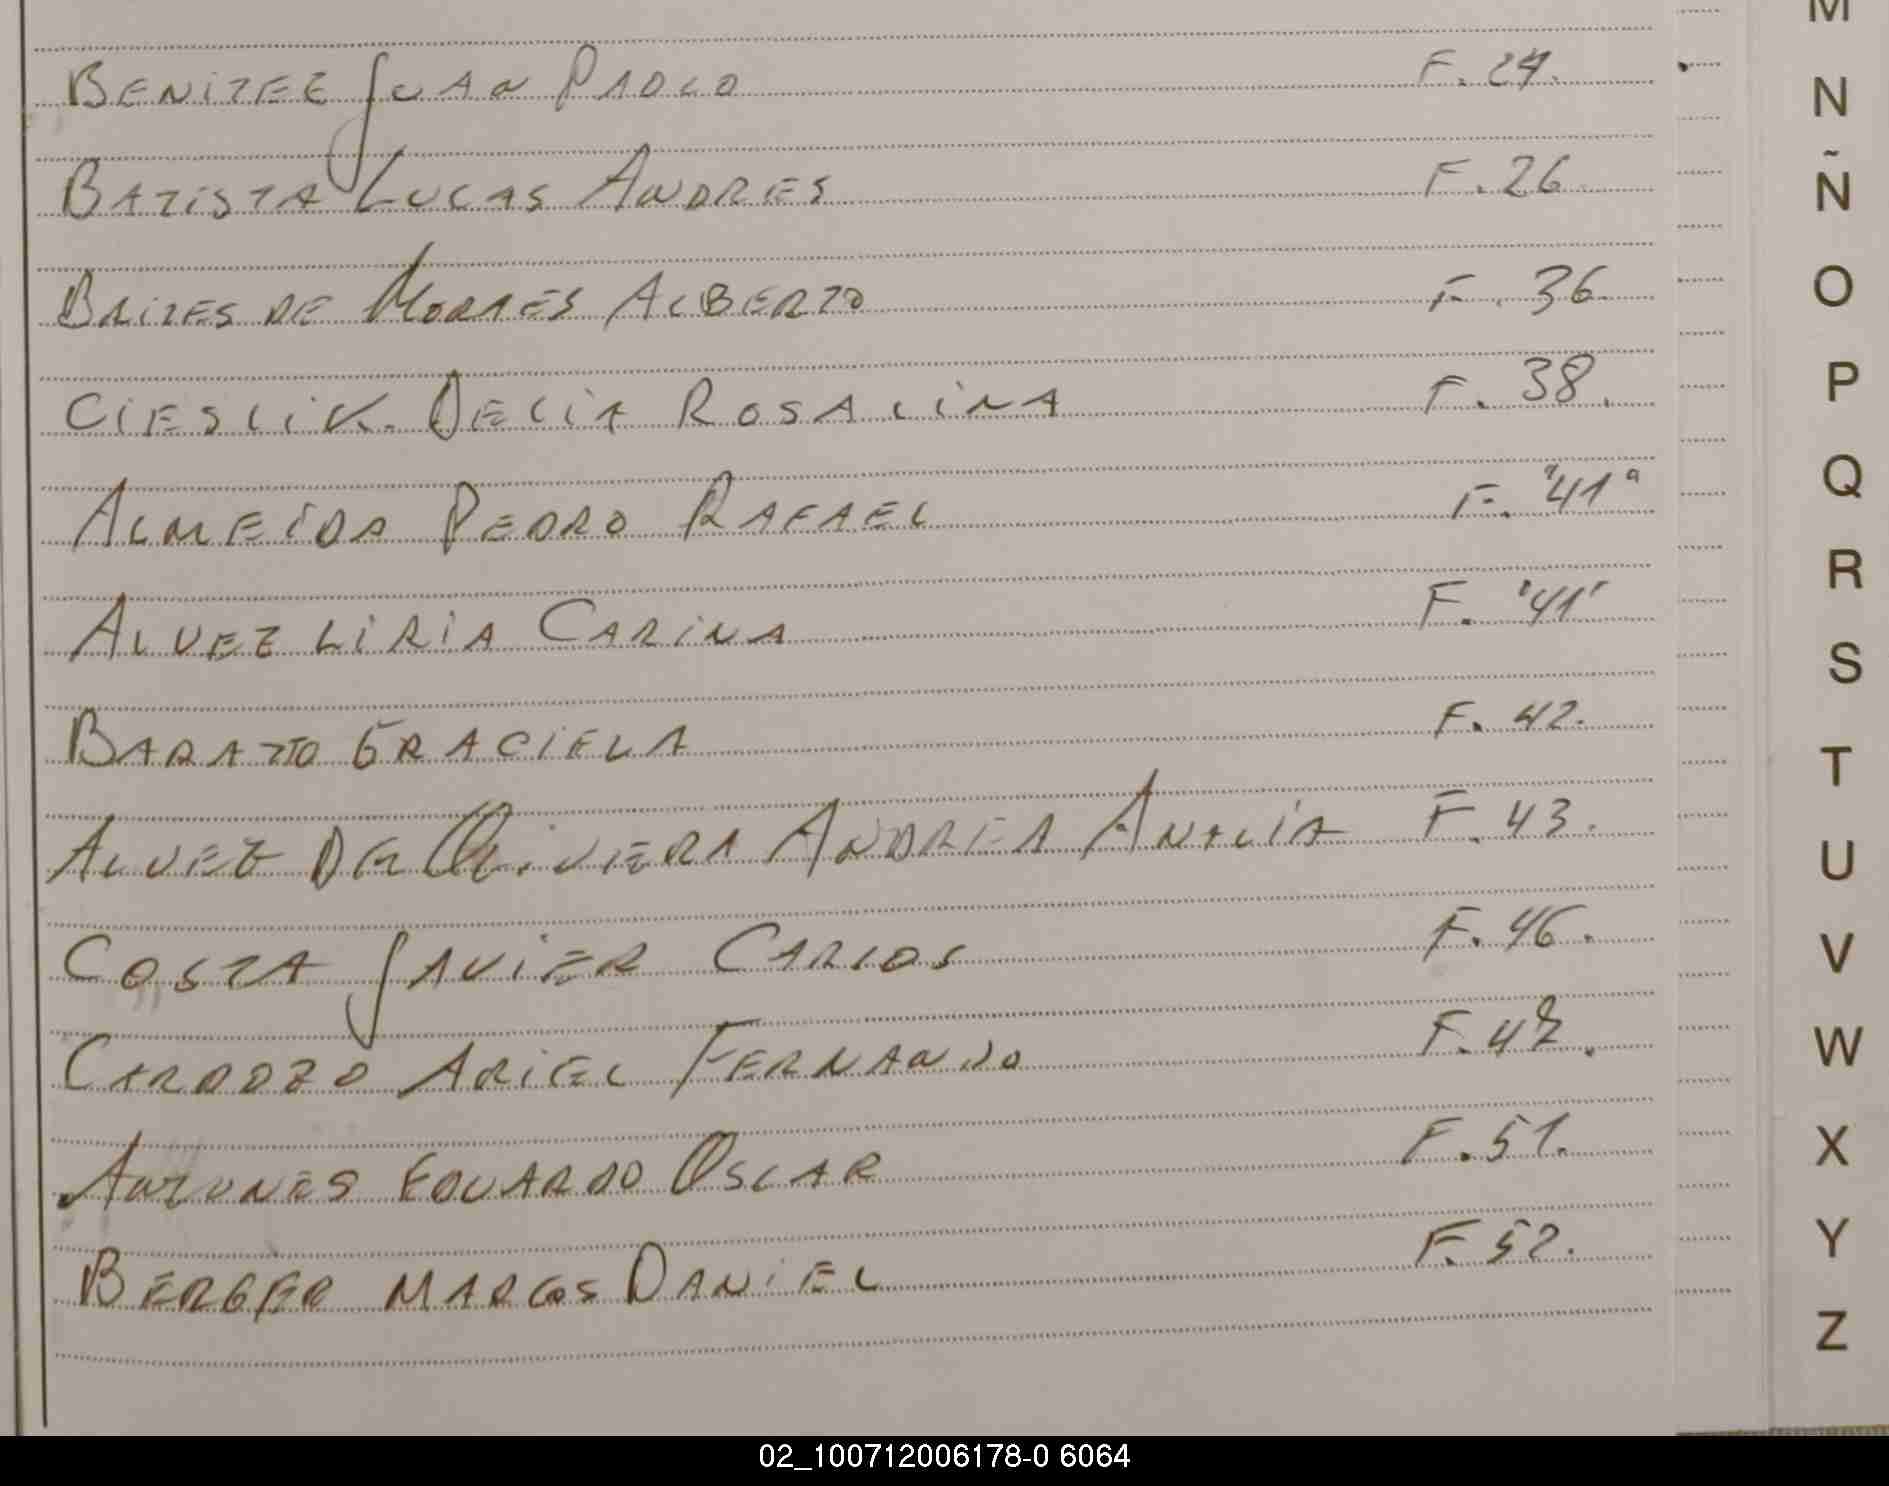 M
BENITEZ JUAN PAOLO F. 24.
N
BATISTA LUCAS ANDRES F. 26.
Ñ
BAITES DE MORAES ALBERTO F. 36.
O
CIESLIK. DELIA ROSALINA F. 38.
P
ALMEIDA PEDRO RAFAEL F. "41"
Q
ALVEZ LIRIA CARINA F. '41'
R
S
BARATTO GRACIELA F. 42.
T
ALVEZ DE OLIVIERA ANDREA ANALIA F. 43.
U
COSTA JAVIER CARLOS F. 46.
V
CARDOZO ARIEL FERNANDO F. 48.
W
ANTUNES EDUARDO OSCAR F. 51.
X
BERGER MARCOS DANIEL F. 52.
Y
Z
02_100712006178-0 6064